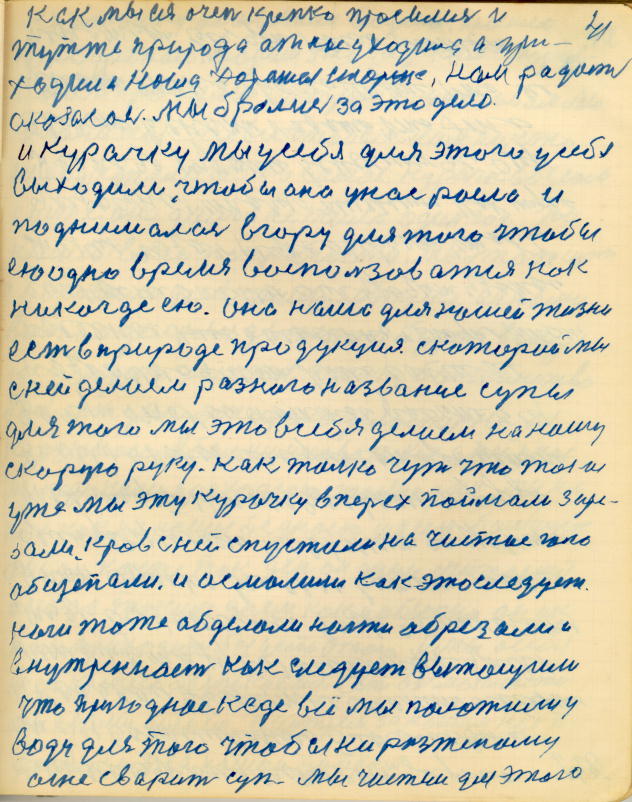 как мы ся очен крепко просилия и
тутже природа от нас уходила а при-
ходила наша хорошая скорые, нам радост
оказалас. Мы бралис за это дело. 21
и курачку мы у себя для этого у себя
выходили, чтобы она у нас росла и
поднималася вгору для того чтобы
ею одно время воспользоватся как
некогде ею. она наша для нашей жизни
ест в природе продукция. с которой мы
с ней делаем разного название супы
для того мы это в себя делаем на нашу
скорую руку. как толко чут что тогда
уже мы эту курочку вперех поймали заре-
зали, кров с ней спустили на чистые голо
общепали. и осмолили как это следует.
ноги тоже обделали ногти обрезали и
внутренност как следует выполучили
что пригодное к еде всё мы положили у
воду для того чтобы ни
огне сварит суп. мы чистим для этого